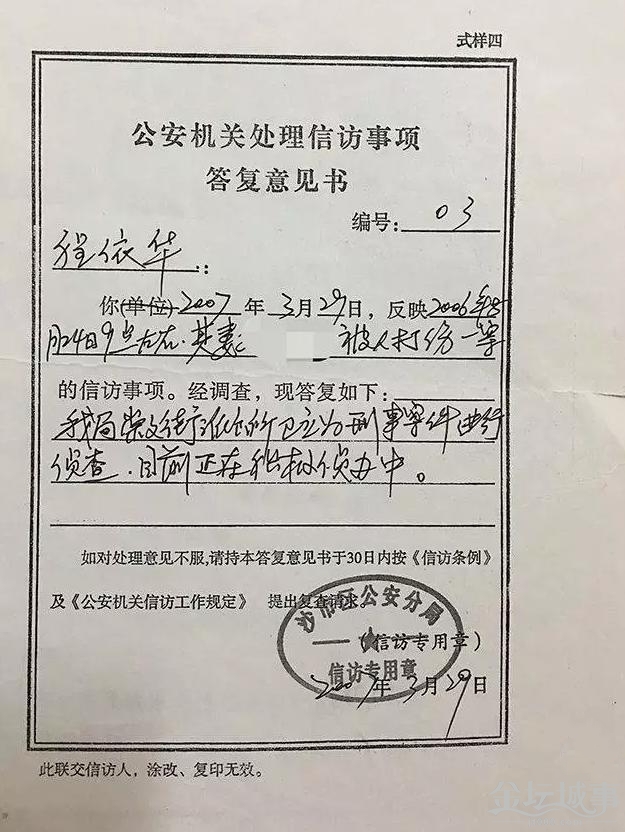 式样四
公安机关处理信访事项
答复意见书
编号: 03
程依华 :
你(单位) 2007 年 3月29日，反映2006年8
月24日9点左右. 其妻 被人打伤一案
的信访事项。经调查，现答复如下:
我局崇文街派出所已立为刑事案件进行
侦查. 目前正在积极侦办中。
如对处理意见不服,请持本答复意见书于30日内按《信访条例》
及《公安机关信访工作规定》 提出复查请求。
沙市区公安分局
(信访专用章)
信访专用章
2007年 3月29日
此联交信访人，涂改、复印无效。
金坛城事